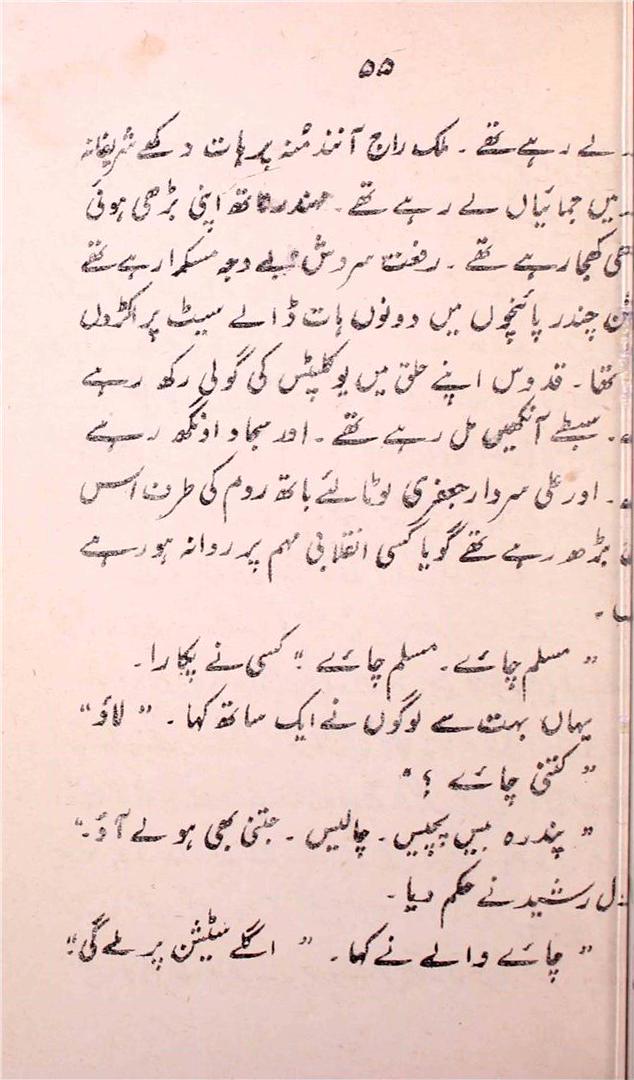 ۵۵
لے رہے تھے ۔ ملک راج آنند مُنہ پر ہات رکھے شریفانہ
میں جمائیاں لے رہے تھے ۔ مہندرناتھ اپنی بڑھی ہوئی
کھجا رہے تھے ۔ رفعت سروش بے وجہ مسکرا رہے تھے
چندر پائنچوں میں دونوں ہات ڈالے سیٹ پر اکڑوں
تھا ۔ قدوس اپنے حلق میں یوکلپٹس کی گولی رکھ رہے
۔ سبطے آنکھیں مل رہے تھے ۔ اور سجاد اونگھ رہے
۔ اور علی سردار جعفری لوٹا لئے باتھ روم کی طرف اس
بڑھ رہے تھے گویا کسی انقلابی مہم پر روانہ ہو رہے
۔
" مسلم چائے ۔ مسلم چائے ! " کسی نے پکارا ۔
یہاں بہت سے لوگوں نے ایک ساتھ کہا ۔ " لاؤ "
" کتنی چائے ؟ "
" پندرہ بیس پچیس ۔ چالیس ۔ جتنی بھی ہو لے آؤ ۔ "
رشید نے حکم دیا ۔
" چائے والے نے کہا ۔ " اگلے سٹیشن پر ملے گی ! "